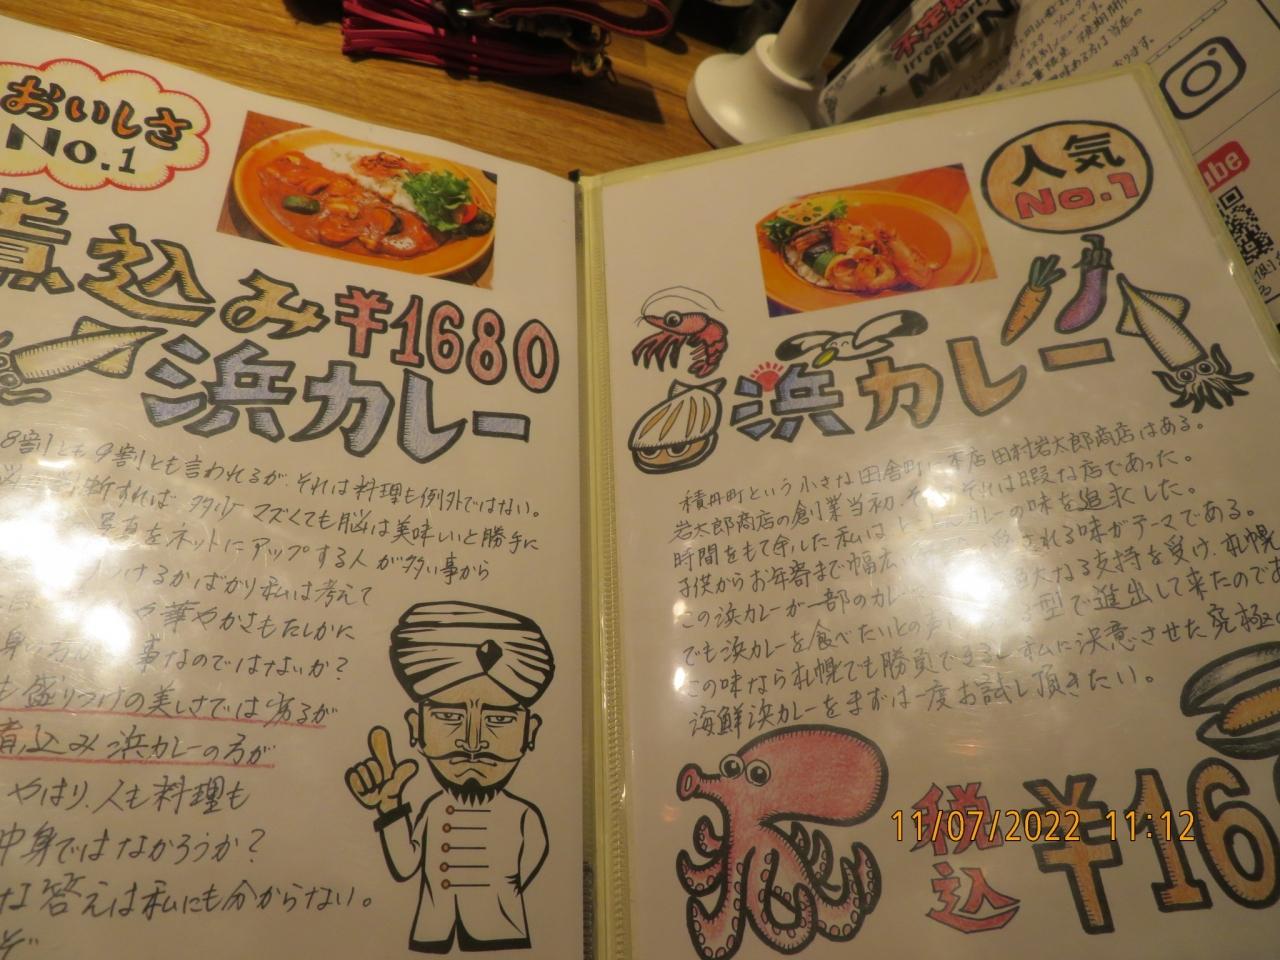 おいしさ
No.1
煮込み ¥1680
浜カレー
8割とも9割とも言われるが、それは料理も例外ではない。
断すれば 多少マズくても脳は美味いと勝手に
写真をネットにアップする人が多い事から
つけるかばかり私は考えて
や華やかさもたしかに
事なのではないか?
も盛りつけの美しさでは劣るが
煮込み浜カレーの方が
やはり、人も料理も
中身ではなかろうか?
な答えは私にも分からない。
ぞ
人気
No.1
浜カレー
積丹町という小さな田舎町に本店田村岩太郎商店はある。
岩太郎商店の創業当初、それはそれは暇な店であった。
時間をもて余した私はとことんカレーの味を追求した。
子供からお年寄まで幅広く される味がテーマである。
この浜カレーが一部のカレー 絶大なる支持を受け、札幌
でも浜カレーを食べたいとの声に る型で進出して来たのであ
この味なら札幌でも勝負できると私に決意させた究極の
海鮮浜カレーをまずは一度お試し頂きたい。
税込 ¥16
不定期
irregularly
MEN
ube
11/07/2022 11:12